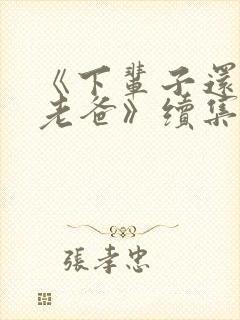 《下輩子還
老爸》續集
張孝忠